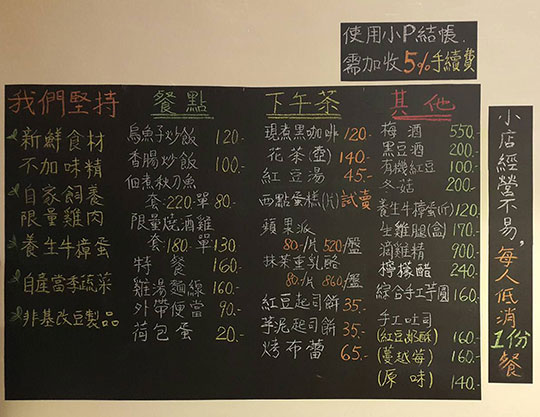 使用小P結帳
需加收5%手續費
我們堅持
新鮮食材
不加味精
自家飼養
限量雞肉
養生牛樟蛋
自產當季蔬菜
非基改豆製品
餐點
烏魚子炒飯 120.-
香腸炒飯 100.-
佃煮秋刀魚
套220.-單80.-
限量燒酒雞
套180.-單130
特餐 160.-
雞湯麵線 160.-
外帶便當 90.-
荷包蛋 20.-
下午茶
現煮黑咖啡 120.-
花茶(壺) 140.-
紅豆湯 45.-
西點蛋糕(片)試賣
蘋果派
80.-/片 520/盤
抹茶重乳酪
80.-/片 860/盤
紅豆起司餅 35.-
芋泥起司餅 35.-
烤布蕾 65.-
其他
梅酒 550.-
黑豆酒 200.-
有機紅豆 100.-
冬菇 200.-
養生牛樟蛋(斤)120.-
生雞腿(盒) 170.-
滴雞精 900.-
檸檬醋 240.-
綜合手工芋圓 160.-
手工吐司
(紅豆奶酥) 160.-
(蔓越莓) 160.-
(原味) 140.-
小店經營不易,每人低消1份餐